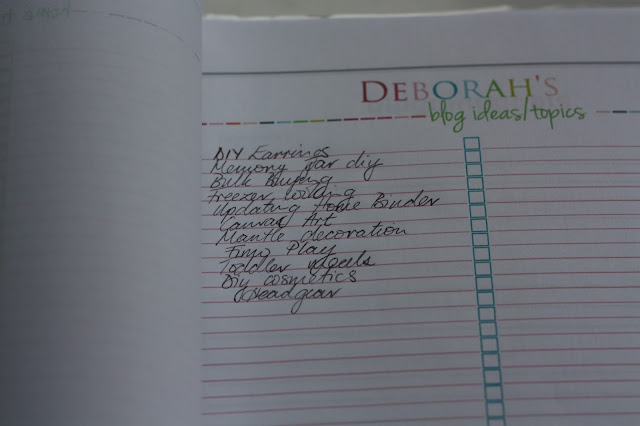 DEBORAH'S
blog ideas/topics
DIY Earrings
Memory Jar diy
Bulk Buying
Freezer cooking
Updating Home Binder
Canvas Art
Mantle decoration
Fimo Play
Toddler meals
Diy cosmetics
Headgear